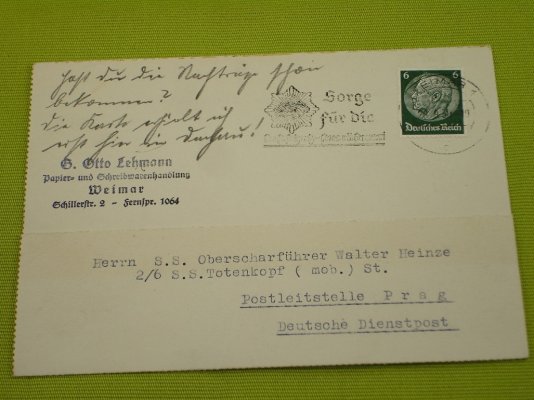 Hast du die Nachträge schon
bekommen?
Die Karte erhielt ich
erst hier in Dachau!
G. Otto Lehmann
Papier- und Schreibwarenhandlung
Weimar
Schillerstr. 2 - Fernspr. 1064
Sorge
für die
6 6
Deutsches Reich
Herrn S.S. Oberscharführer Walter Heinze
2/6 S.S.Totenkopf ( mob.) St.
Postleitstelle Prag
Deutsche Dienstpost